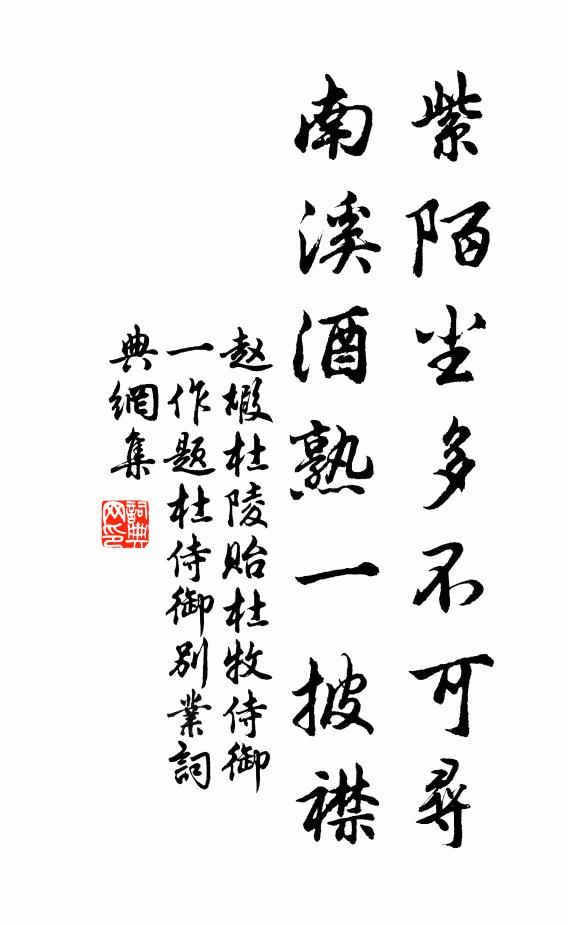 紫陌尘多不可寻
南溪酒熟一披襟
赵嘏杜陵贻杜牧侍御
一作题杜侍御别業詞
典網集
詞典网印